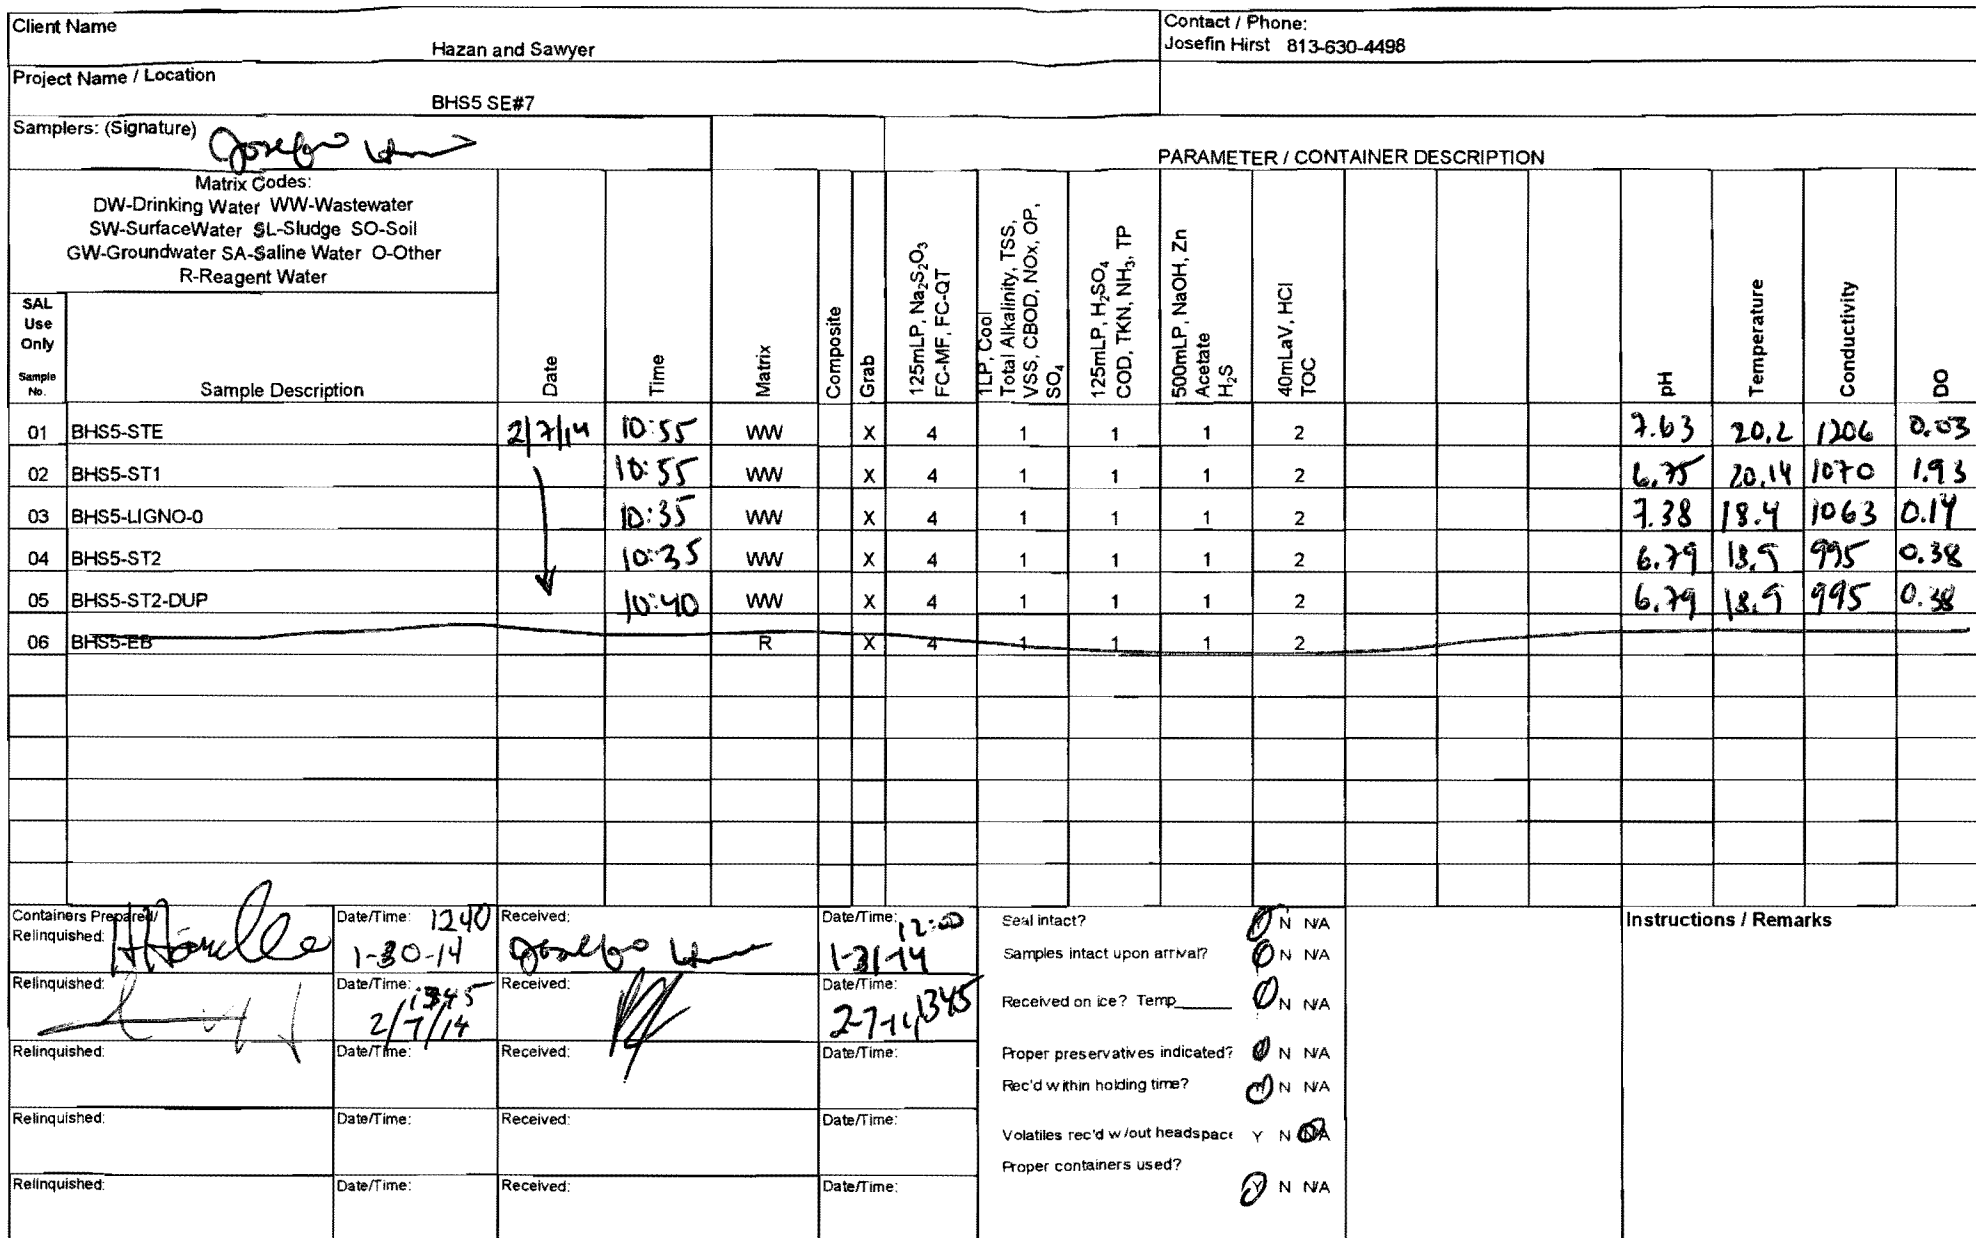 Client Name
Hazan and Sawyer
Contact / Phone:
Josefin Hirst 813-630-4498
Project Name / Location
BHS5 SE#7
Samplers: (Signature)
PARAMETER / CONTAINER DESCRIPTION
Matrix Codes:
DW-Drinking Water WW-Wastewater
SW-SurfaceWater SL-Sludge SO-Soil
GW-Groundwater SA-Saline Water O-Other
R-Reagent Water
SAL
Use
Only
Sample
No.
Sample Description
Date
Time
Matrix
Composite
Grab
125mLP, Na₂S₂O₃
FC-MF, FC-QT
1LP, Cool
Total Alkalinity, TSS,
VSS, CBOD, NOx, OP,
SO₄
125mLP, H₂SO₄
COD, TKN, NH₃, TP
500mLP, NaOH, Zn
Acetate
H₂S
40mLaV, HCl
TOC
pH
Temperature
Conductivity
DO
01 BHS5-STE 2/7/14 10:55 WW X 4 1 1 1 2 7.63 20.2 1206 0.03
02 BHS5-ST1 10:55 WW X 4 1 1 1 2 6.75 20.14 1070 1.93
03 BHS5-LIGNO-0 10:35 WW X 4 1 1 1 2 7.38 18.4 1063 0.14
04 BHS5-ST2 10:35 WW X 4 1 1 1 2 6.79 18.9 995 0.38
05 BHS5-ST2-DUP 10:40 WW X 4 1 1 1 2 6.79 18.9 995 0.38
06 BHS5-EB R X 4 1 1 1 2
Containers Prepared/
Relinquished:
Date/Time: 1240
1-30-14
Received:
Date/Time: 12:00
1-31-14
Relinquished:
Date/Time: 1345
2/7/14
Received:
Date/Time:
2-7-14 1345
Relinquished:
Date/Time:
Received:
Date/Time:
Relinquished:
Date/Time:
Received:
Date/Time:
Relinquished:
Date/Time:
Received:
Date/Time:
Seal intact? Y N N/A
Samples intact upon arrival? Y N N/A
Received on ice? Temp______ Y N N/A
Proper preservatives indicated? Y N N/A
Rec'd within holding time? Y N N/A
Volatiles rec'd w/out headspace Y N N/A
Proper containers used?
Y N N/A
Instructions / Remarks